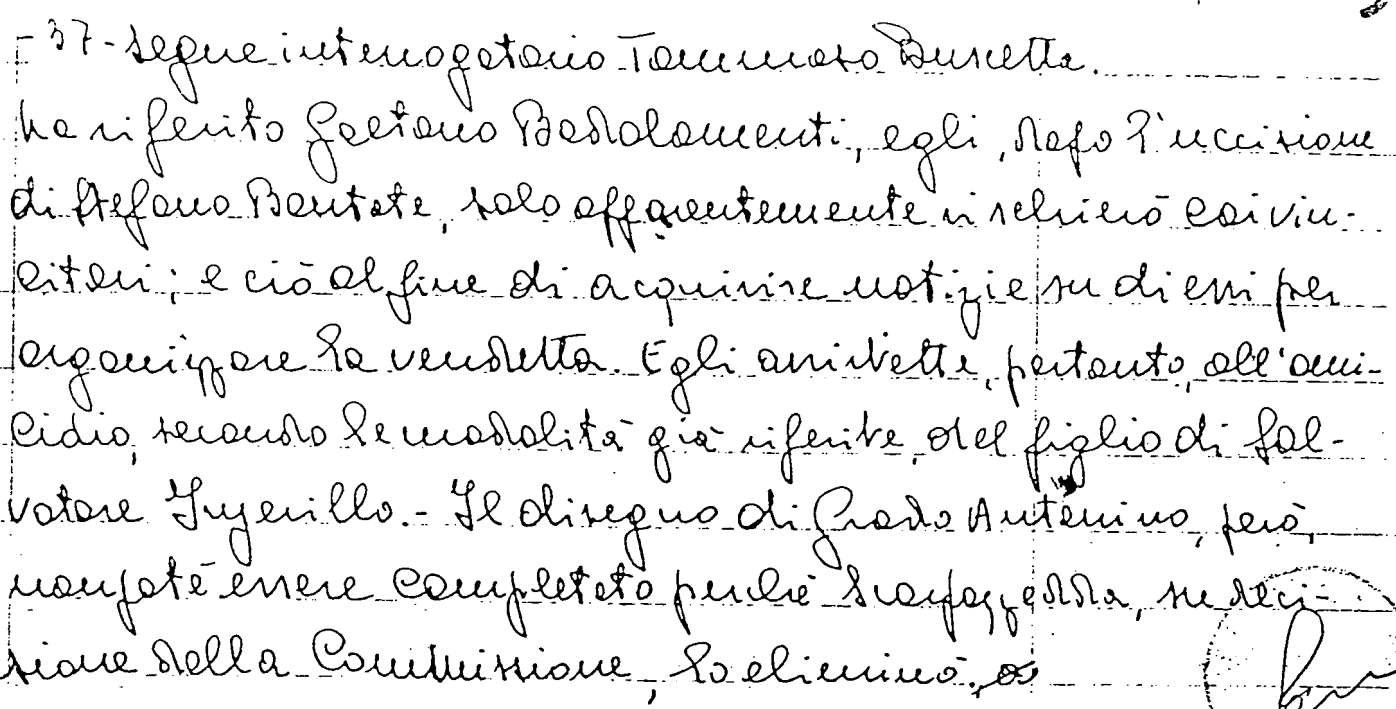 - 37 - segue interrogatorio Tommaso Buscetta.
ha riferito Gaetano Badalamenti, egli, dopo l'uccisione
di Stefano Bontate, solo apparentemente si schierò coi vin-
citori; e ciò al fine di acquisire notizie su di essi per
organizzare la vendetta. Egli assistette, pertanto, all'omi-
cidio, secondo le modalità già riferite, del figlio di Sal-
vatore Inzerillo. - Il disegno di Grado Antonino, però,
non poté essere completato perché Scarpazzedda, su deci-
sione della Commissione, lo eliminò.